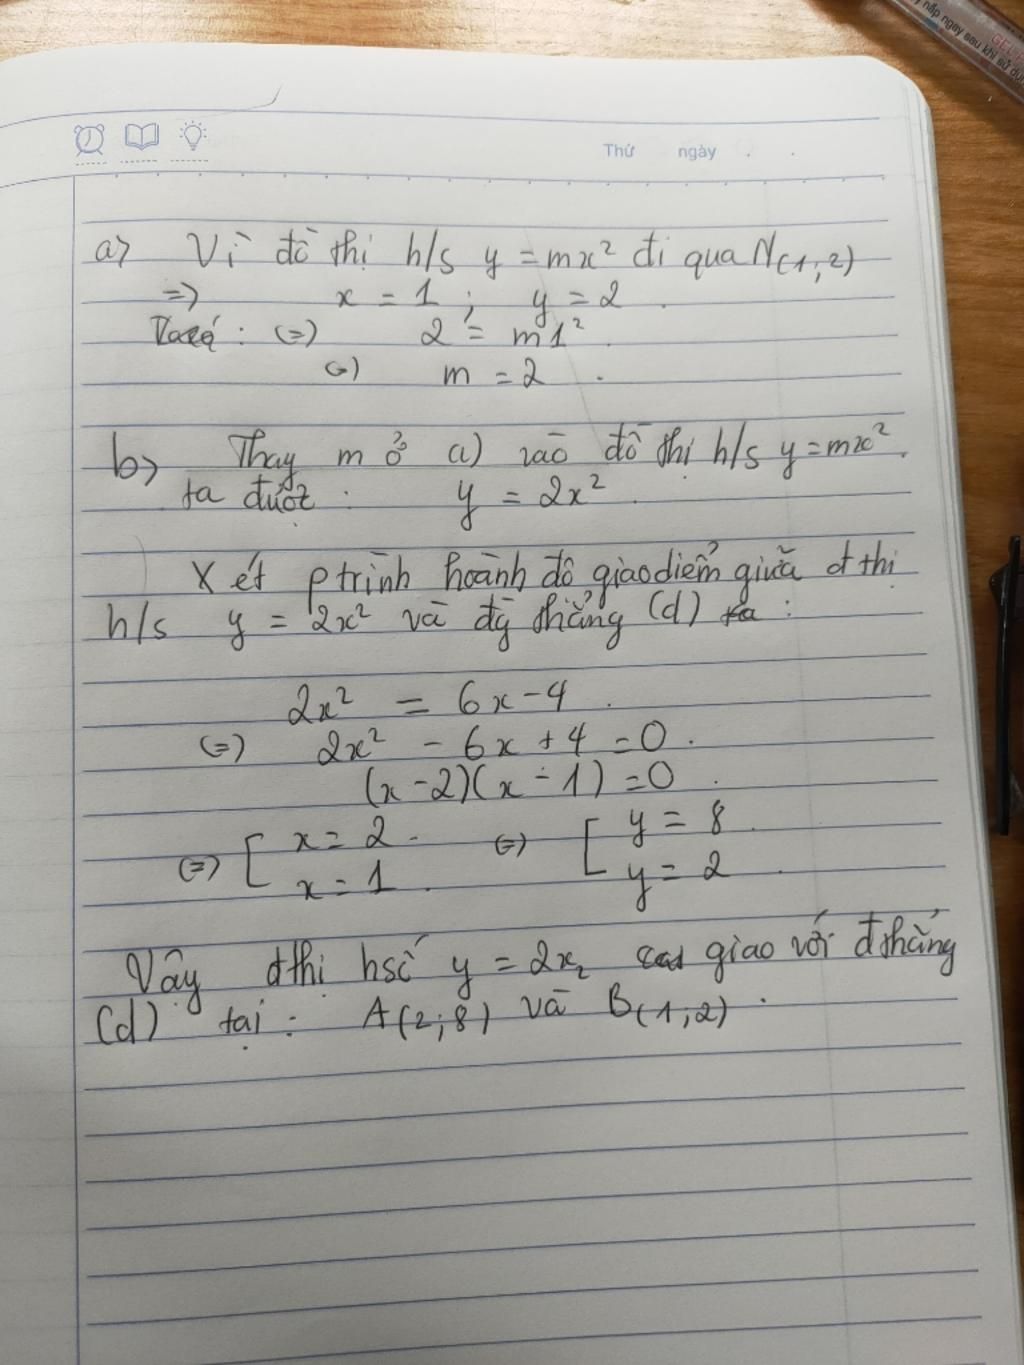 nắp ngay sau khi sử dụng
GEL
Thứ ngày
a) Vì đồ thị h/s y = mx² đi qua N(1;2)
=> x = 1 ; y = 2 .
(=) 2 = m1² .
(=) m = 2 .
b) Thay m ở a) vào đồ thị h/s y = mx² .
ta được : y = 2x² .
Xét ptrình hoành độ giao điểm giữa đthị
h/s y = 2x² và đg thẳng (d) :
2x² = 6x - 4 .
(=) 2x² - 6x + 4 = 0 .
(x - 2)(x - 1) = 0 .
(=) [ x = 2 . (=) [ y = 8 .
x = 1 . y = 2 .
Vậy đthị hsố y = 2x₂ giao với đthẳng
(d) tại : A(2;8) và B(1;2) .